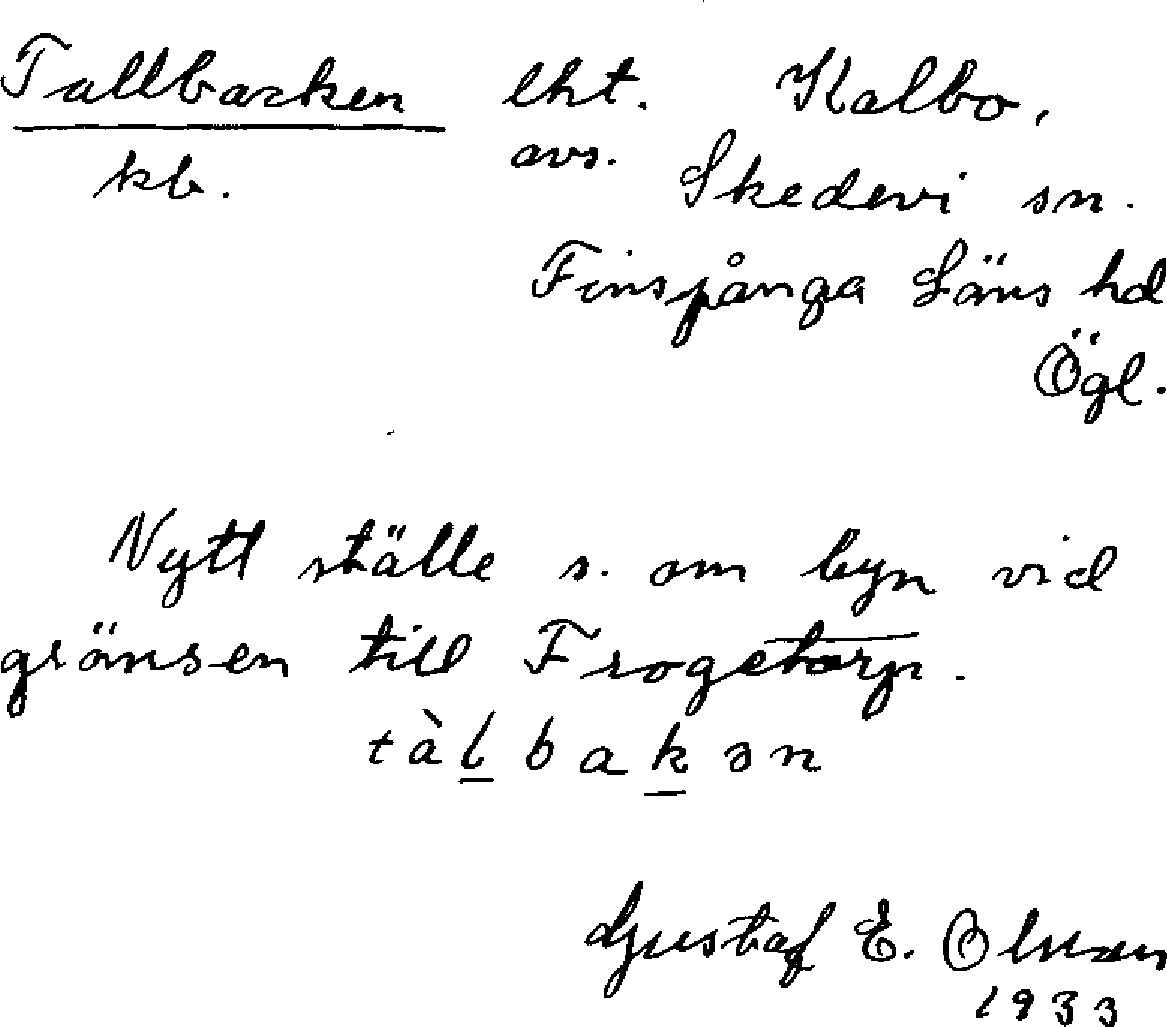 Tallbacken lht. Kalbo,
kb. avs. Skedevi sn.
Finspånga Läns hd
Ögl.
Nytt ställe s. om byn vid
gränsen till Frogetorp.
tàl̲bak̲ən
Gustaf E. Olsson
1933